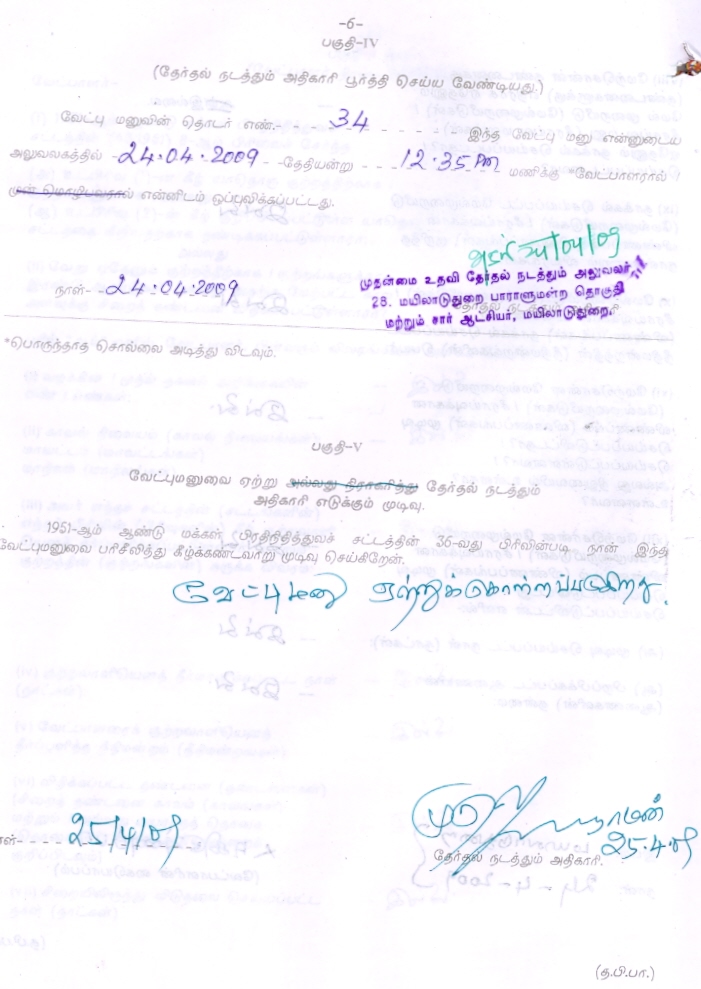 -6-
பகுதி-IV
(தேர்தல் நடத்தும் அதிகாரி பூர்த்தி செய்ய வேண்டியது.)
வேட்பு மனுவின் தொடர் எண். 34 இந்த வேட்பு மனு என்னுடைய
அலுவலகத்தில் 24.04.2009 தேதியன்று 12.35 PM மணிக்கு *வேட்பாளரால் /
முன் மொழிபவரால் என்னிடம் ஒப்புவிக்கப்பட்டது.
24/04/09
முதன்மை உதவி தேர்தல் நடத்தும் அலுவலர்
நாள்- 24.04.2009
28. மயிலாடுதுறை பாராளுமன்ற தொகுதி
மற்றும் சார் ஆட்சியர், மயிலாடுதுறை.
*பொருந்தாத சொல்லை அடித்து விடவும்.
பகுதி-V
வேட்புமனுவை ஏற்று அல்லது நிராகரித்து தேர்தல் நடத்தும்
அதிகாரி எடுக்கும் முடிவு.
1951-ஆம் ஆண்டு மக்கள் பிரதிநிதித்துவச் சட்டத்தின் 36-வது பிரிவின்படி நான் இந்த
வேட்புமனுவை பரிசீலித்து கீழ்க்கண்டவாறு முடிவு செய்கிறேன்.
வேட்புமனு ஏற்றுக்கொள்ளப்படுகிறது.
நாள்- 25/4/09
25.4.09
தேர்தல் நடத்தும் அதிகாரி.
(த.பி.பா.)